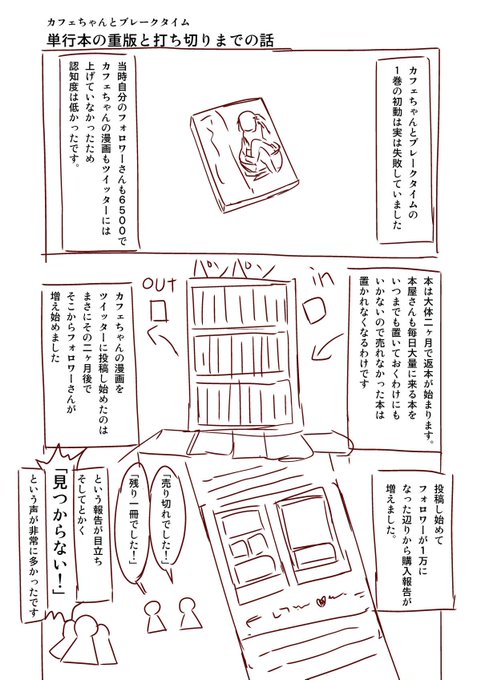 カフェちゃんとブレークタイム
単行本の重版と打ち切りまでの話
カフェちゃんとブレークタイムの
1巻の初動は実は失敗していました
当時自分のフォロワーさんも6500で
カフェちゃんの漫画もツイッターには
上げていなかったため
認知度は低かったです。
本は大体二ヶ月で返本が始まります。
本屋さんも毎日大量に来る本を
いつまでも置いておくわけにも
いかないので売れなかった本は
置かれなくなるわけです
in
パンパン
OUT
カフェちゃんの漫画を
ツイッターに投稿し始めたのは
まさにその二ヶ月後で
そこからフォロワーさんが
増え始めました
投稿し始めて
フォロワーが1万に
なった辺りから購入報告が
増えました。
「売り切れでした!」
「残り一冊でした!」
という報告が目立ち
そしてとかく
「見つからない!」
という声が非常に多かったです